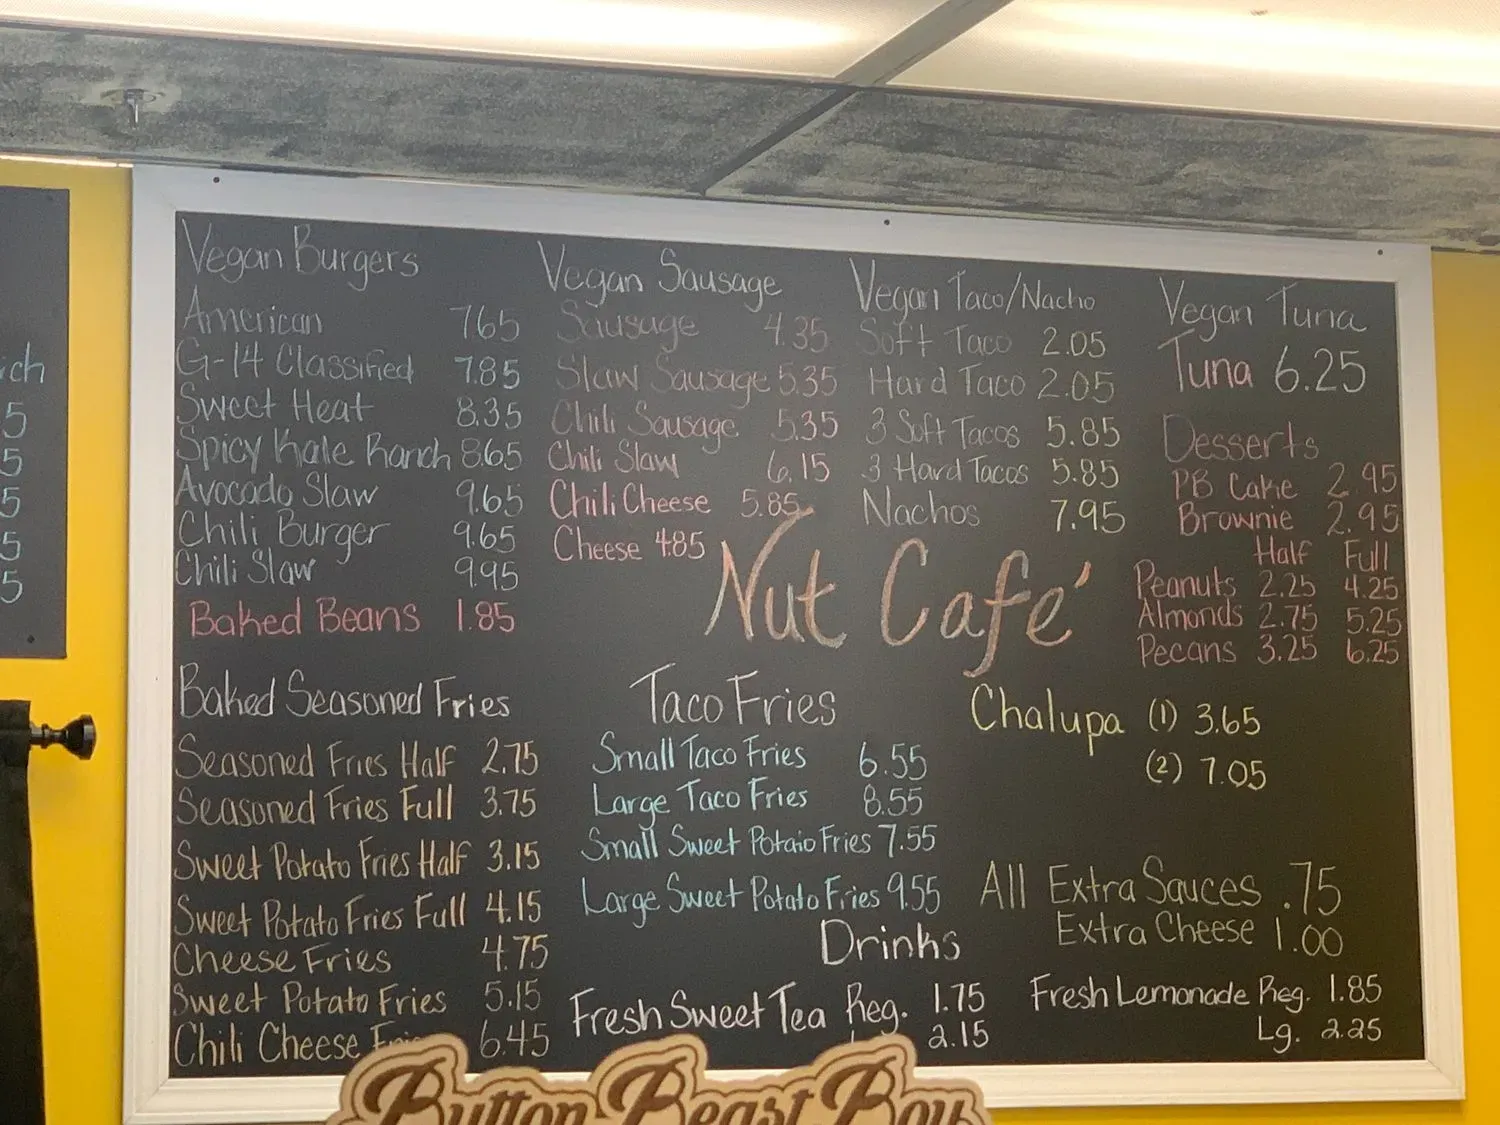 ich
5
5
5
5
5
Vegan Burgers
American 7.65
G-14 Classified 7.85
Sweet Heat 8.35
Spicy Kale Ranch 8.65
Avocado Slaw 9.65
Chili Burger 9.65
Chili Slaw 9.95
Baked Beans 1.85
Vegan Sausage
Sausage 4.35
Slaw Sausage 5.35
Chili Sausage 5.35
Chili Slaw 6.15
Chili Cheese 5.85
Cheese 4.85
Vegan Taco/Nacho
Soft Taco 2.05
Hard Taco 2.05
3 Soft Tacos 5.85
3 Hard Tacos 5.85
Nachos 7.95
Vegan Tuna
Tuna 6.25
Desserts
PB Cake 2.95
Brownie 2.95
Half Full
Peanuts 2.25 4.25
Almonds 2.75 5.25
Pecans 3.25 6.25
Nut Café
Baked Seasoned Fries
Seasoned Fries Half 2.75
Seasoned Fries Full 3.75
Sweet Potato Fries Half 3.15
Sweet Potato Fries Full 4.15
Cheese Fries 4.75
Sweet Potato Fries 5.15
Chili Cheese 6.45
Taco Fries
Small Taco Fries 6.55
Large Taco Fries 8.55
Small Sweet Potato Fries 7.55
Large Sweet Potato Fries 9.55
Chalupa (1) 3.65
(2) 7.05
All Extra Sauces .75
Extra Cheese 1.00
Drinks
Fresh Sweet Tea Reg. 1.75
2.15
Fresh Lemonade Reg. 1.85
Lg. 2.25
Button Beast Boy